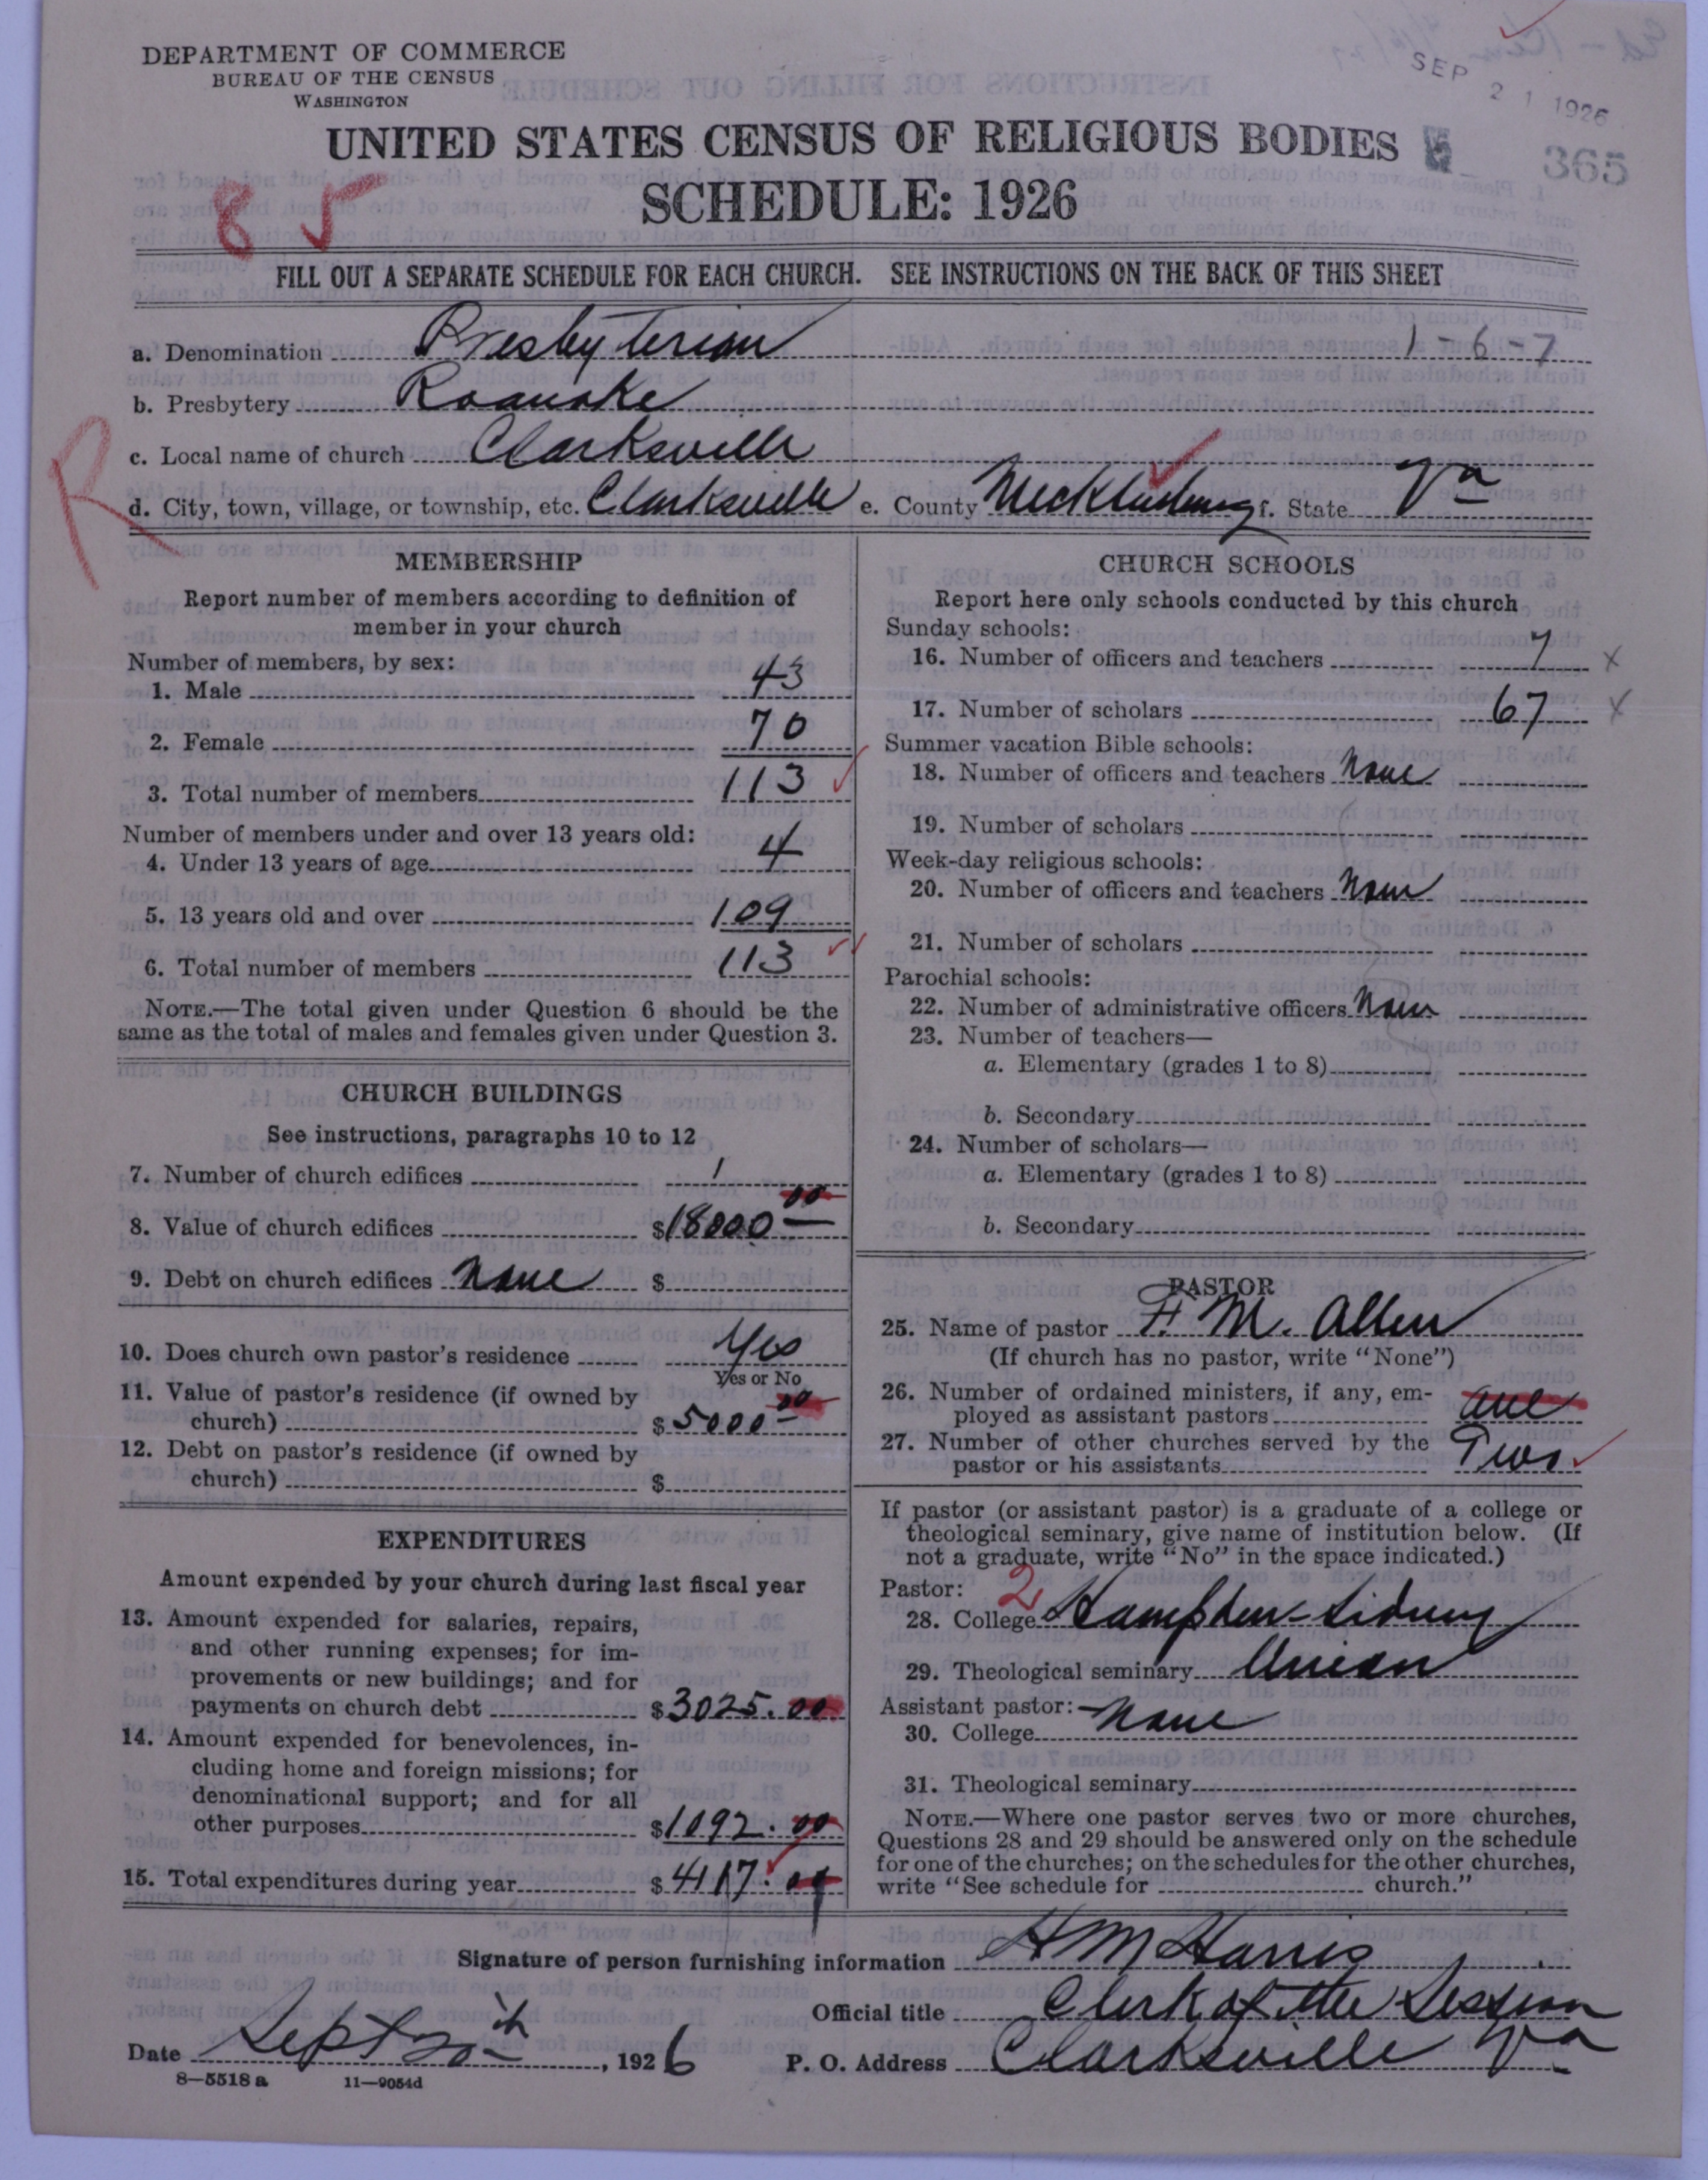 DEPARTMENT OF COMMERCE
BUREAU OF THE CENSUS
WASHINGTON
SEP 21 1926
UNITED STATES CENSUS OF RELIGIOUS BODIES
365
SCHEDULE: 1926
85
FILL OUT A SEPARATE SCHEDULE FOR EACH CHURCH. SEE INSTRUCTIONS ON THE BACK OF THIS SHEET
a. Denomination Presbyterian 1-6-7
b. Presbytery Roanoke
R
c. Local name of church Clarksville
d. City, town, village, or township, etc. Clarksville e. County Mecklenburg f. State Va
MEMBERSHIP
Report number of members according to definition of
member in your church
Number of members, by sex:
1. Male 43
2. Female 70
3. Total number of members 113
Number of members under and over 13 years old:
4. Under 13 years of age 4
5. 13 years old and over 109
6. Total number of members 113
NOTE.—The total given under Question 6 should be the
same as the total of males and females given under Question 3.
CHURCH BUILDINGS
See instructions, paragraphs 10 to 12
7. Number of church edifices 1
8. Value of church edifices $18000 00
9. Debt on church edifices None $
10. Does church own pastor's residence Yes
Yes or No
11. Value of pastor's residence (if owned by
church) $5000 00
12. Debt on pastor's residence (if owned by
church) $
EXPENDITURES
Amount expended by your church during last fiscal year
13. Amount expended for salaries, repairs,
and other running expenses; for im-
provements or new buildings; and for
payments on church debt $3025.00
14. Amount expended for benevolences, in-
cluding home and foreign missions; for
denominational support; and for all
other purposes $1092.00
15. Total expenditures during year $4117.
CHURCH SCHOOLS
Report here only schools conducted by this church
Sunday schools:
16. Number of officers and teachers 7 x
17. Number of scholars 67 x
Summer vacation Bible schools:
18. Number of officers and teachers None
19. Number of scholars
Week-day religious schools:
20. Number of officers and teachers None
21. Number of scholars
Parochial schools:
22. Number of administrative officers None
23. Number of teachers—
a. Elementary (grades 1 to 8)
b. Secondary
24. Number of scholars—
a. Elementary (grades 1 to 8)
b. Secondary
PASTOR
25. Name of pastor F. M. Allen
(If church has no pastor, write "None")
26. Number of ordained ministers, if any, em-
ployed as assistant pastors
27. Number of other churches served by the
pastor or his assistants Two
If pastor (or assistant pastor) is a graduate of a college or
theological seminary, give name of institution below. (If
not a graduate, write "No" in the space indicated.)
Pastor: 2
28. College Hampden-Sidney
29. Theological seminary Union
Assistant pastor:
30. College None
31. Theological seminary
NOTE.—Where one pastor serves two or more churches,
Questions 28 and 29 should be answered only on the schedule
for one of the churches; on the schedules for the other churches,
write "See schedule for church."
Signature of person furnishing information H M Harris
Official title Clerk of the Session
Date Sept 20th, 1926 P. O. Address Clarksville Va
8—5518 a 11—9054d